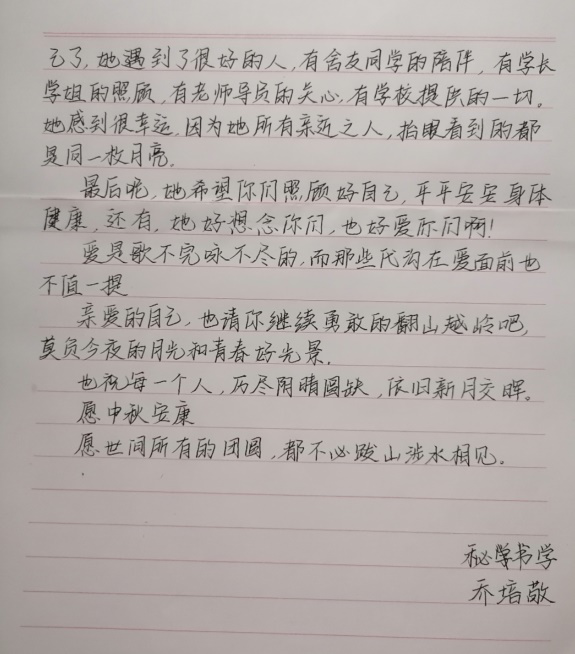 己了，她遇到了很好的人，有舍友同学的陪伴，有学长
学姐的照顾，有老师导员的关心，有学校提供的一切。
她感到很幸运，因为她所有亲近之人，抬眼看到的都
是同一枚月亮。
最后呢，她希望你们照顾好自己，平平安安身体
健康，还有，她好想念你们，也好爱你们啊！
爱是歌不完咏不尽的，而那些代沟在爱面前也
不值一提
亲爱的自己，也请你继续勇敢的翻山越岭吧，
莫负今夜的月光和青春好光景。
也祝每一个人，历尽阴晴圆缺，依旧新月交晖。
愿中秋安康
愿世间所有的团圆，都不必跋山涉水相见。
秘学书学
乔培敬